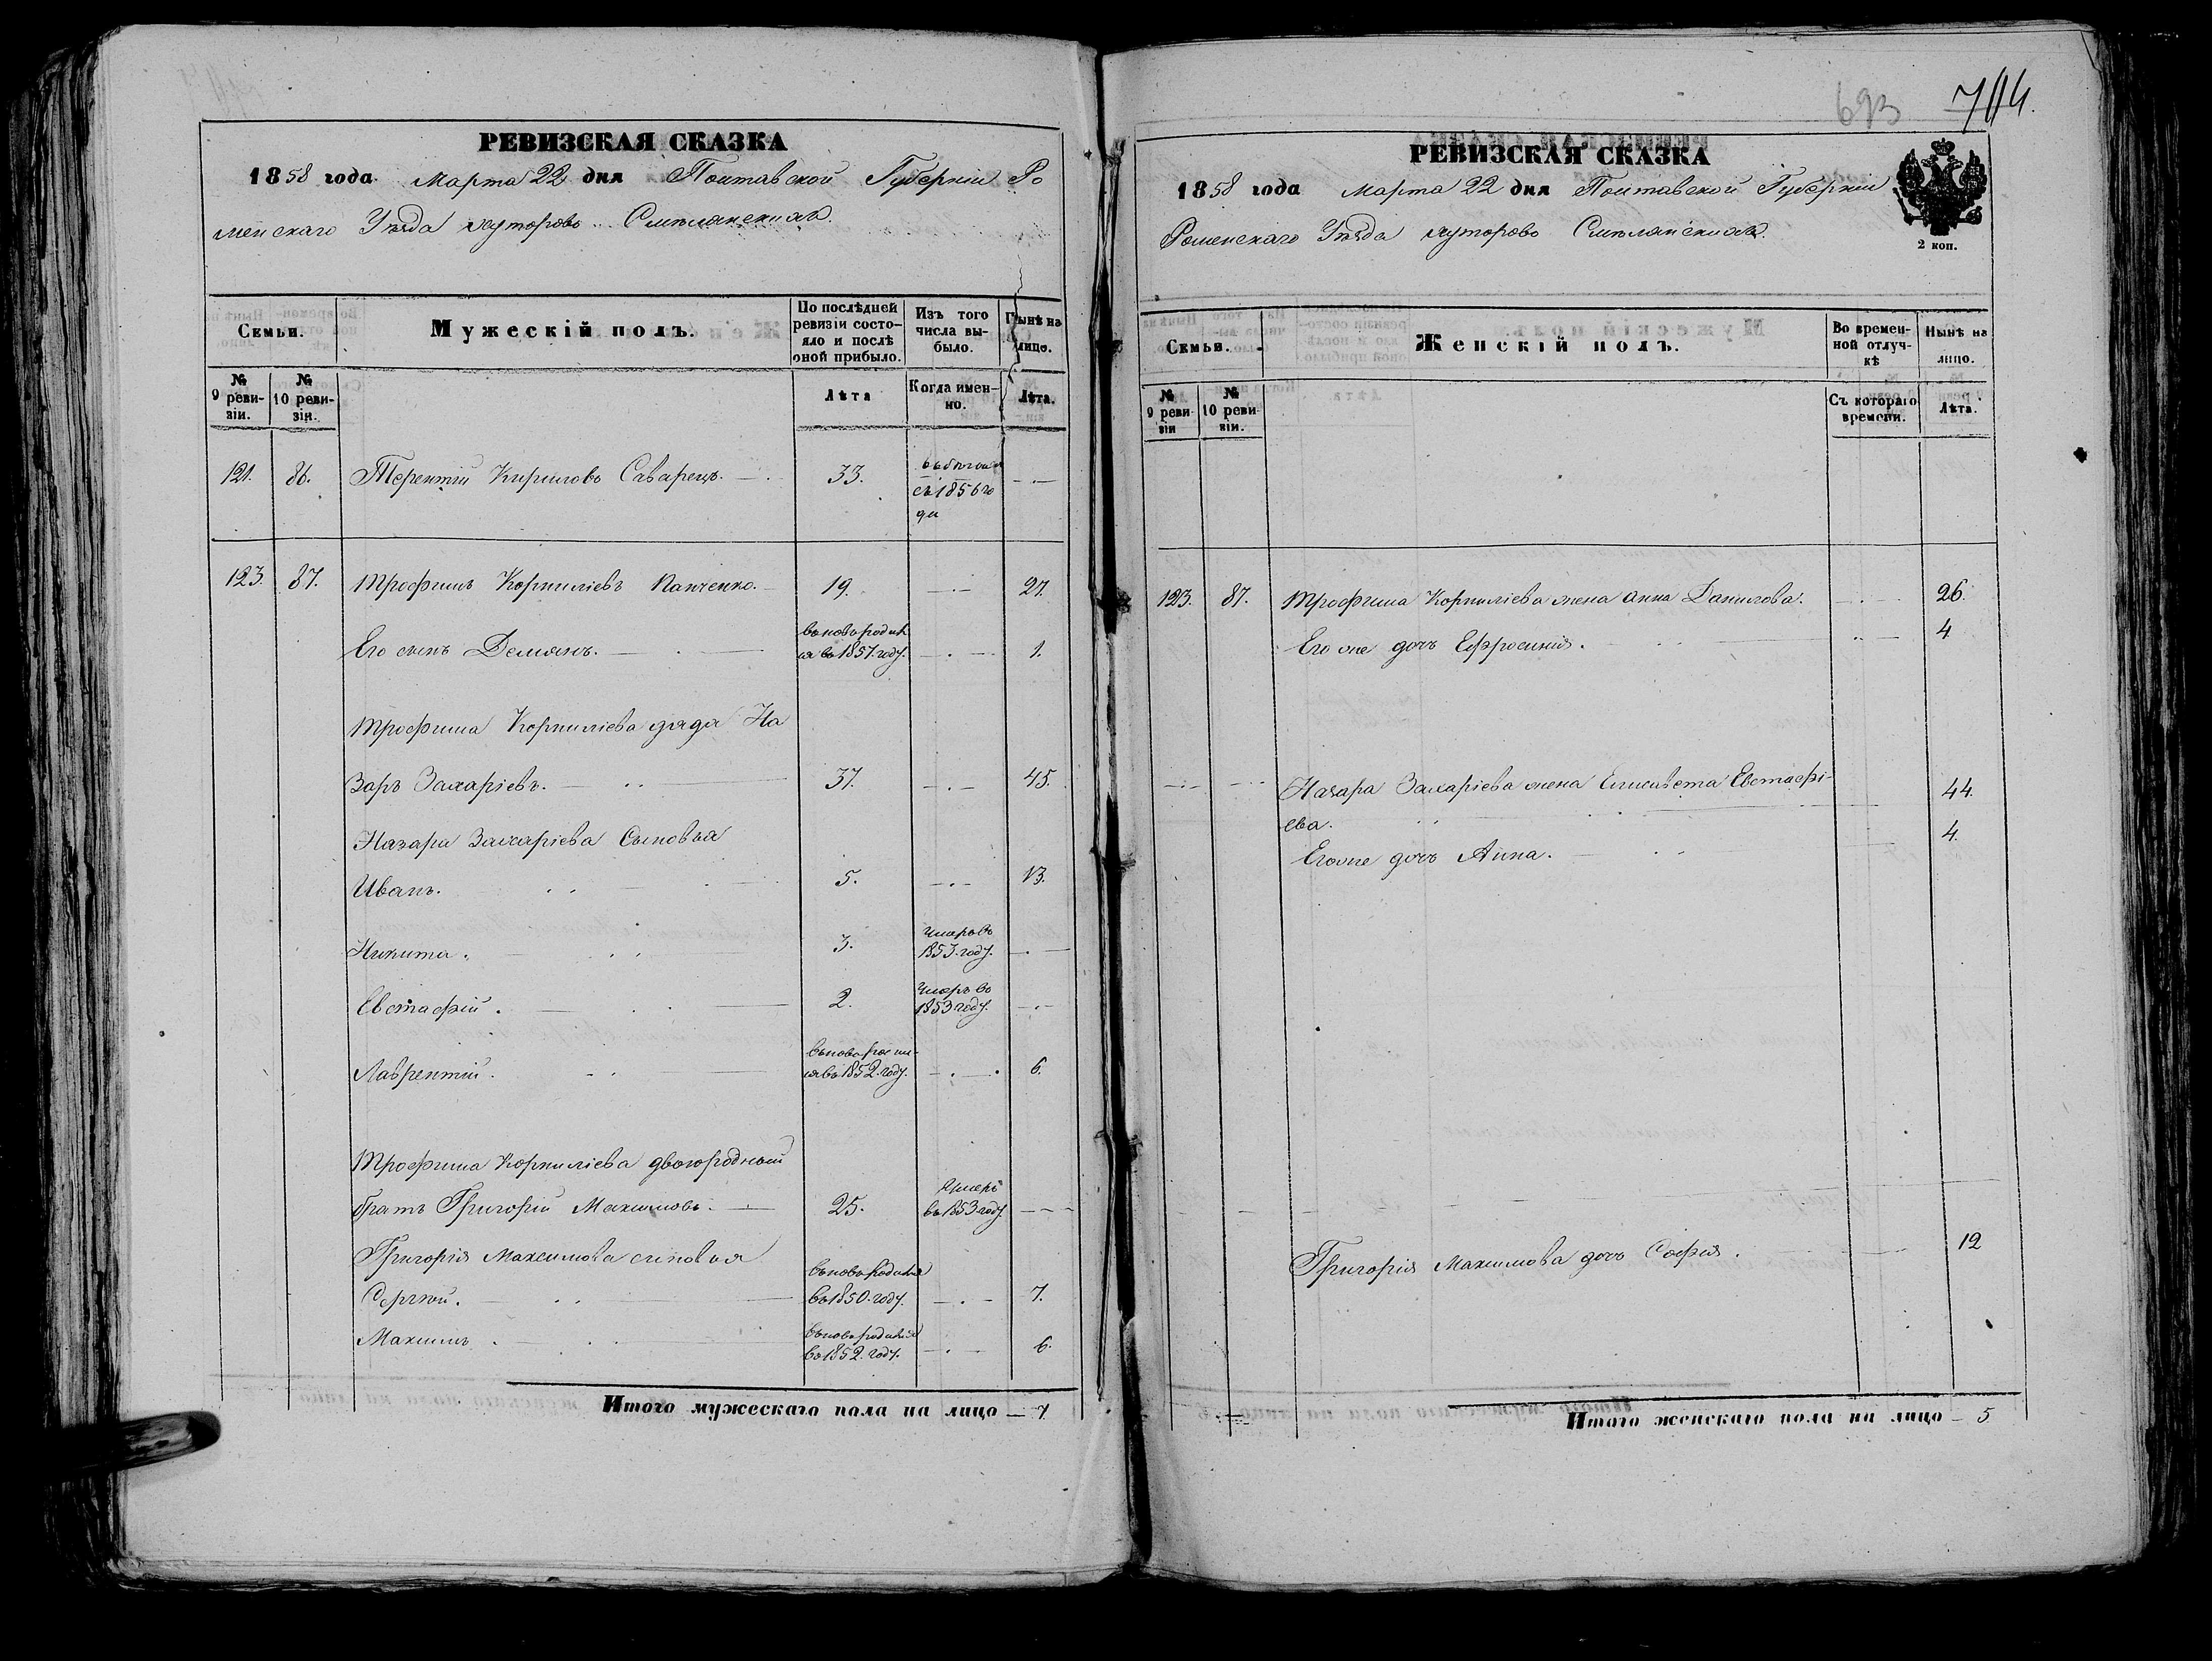 РЕВИЗСКАЯ СКАЗКА
1858 года Марта 22 дня Полтавской Губерніи Ро
менскаго Уѣзда хуторовъ Смѣлянскихъ.
Семьи.
Мужескій полъ.
По послѣдней ревизіи состояло и послѣ оной прибыло.
Изъ того числа выбыло.
Нынѣ на лицо.
№ 9 ревизіи.
№ 10 ревизіи.
Лѣта
Когда именно.
Лѣта.
121. 86. Терентій Кириловъ Саварецъ. 33. въ бѣгахъ
съ 1856 го
да
123. 87. Трофимъ Корниліевъ Панченко. 19. 27.
Его сынъ Демянъ. вновь родил
ся въ 1857. году. 1.
Трофима Корниліева дядя На
заръ Захаріевъ. 37. 45.
Назара Захаріева Сыновья
Иванъ. 5. 13.
Никита. 3. Умеръ въ
1853. году.
Евстафій. 2. Умеръ въ
1853 году.
Лаврентій. вновь родил
ся въ 1852. году. 6.
Трофима Корниліева двоюродный
братъ Григорій Максимовъ. 25. Умеръ
въ 1853 году
Григорія Максимова сыновья
Сергѣй. вновь родился
въ 1850. году. 7.
Максимъ. вновь родился
въ 1852. году. 6.
Итого мужескаго пола на лицо — 7.
693 704.
РЕВИЗСКАЯ СКАЗКА
1858 года Марта 22 дня Полтавской Губерніи
Роменскаго Уѣзда хуторовъ Смѣлянскихъ.
2 коп.
Семьи.
Женскій полъ.
Во временной отлучкѣ
Нынѣ на лицо.
№ 9 ревизіи
№ 10 ревизіи.
Съ котораго времени.
Лѣта.
123. 87. Трофима Корниліева жена Анна Данилова. 26.
Его же дочь Ефросинія. 4
Назара Захаріева жена Елисавета Евстафі-
ева. 44.
Его же дочь Анна. 4.
Григорія Максимова дочь Софія. 12
Итого женскаго пола на лицо — 5